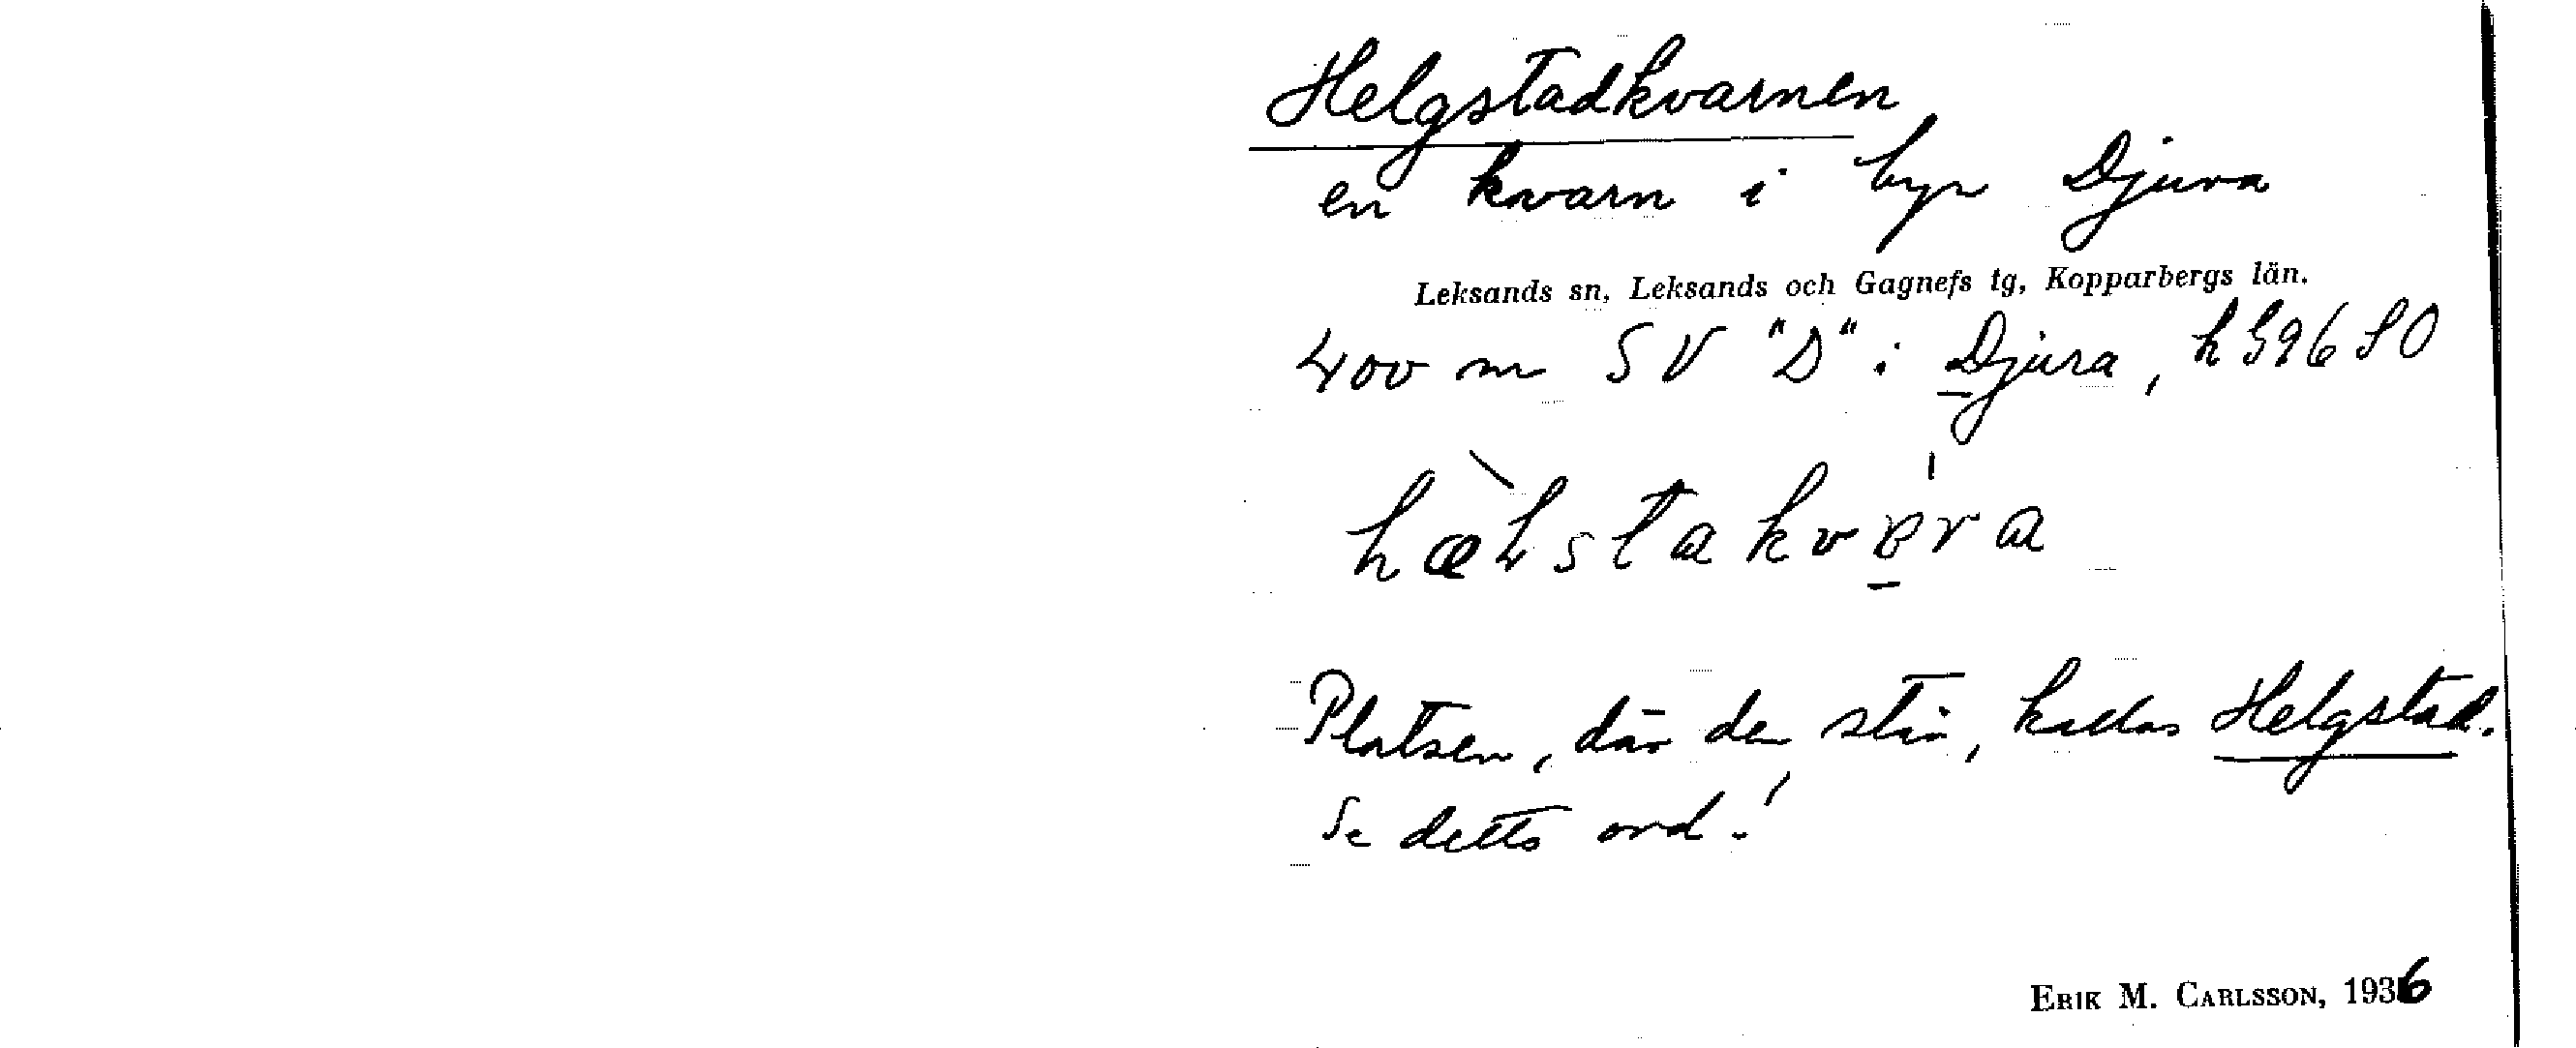 Helgstadkvarnen
en kvarn i byn Djura
Leksands sn, Leksands och Gagnefs tg, Kopparbergs län.
400 m SV "D" i Djura, h 596 SO
Platsen, där den står, kallas Helgstad.
Se detta ord!
ERIK M. CARLSSON, 1936